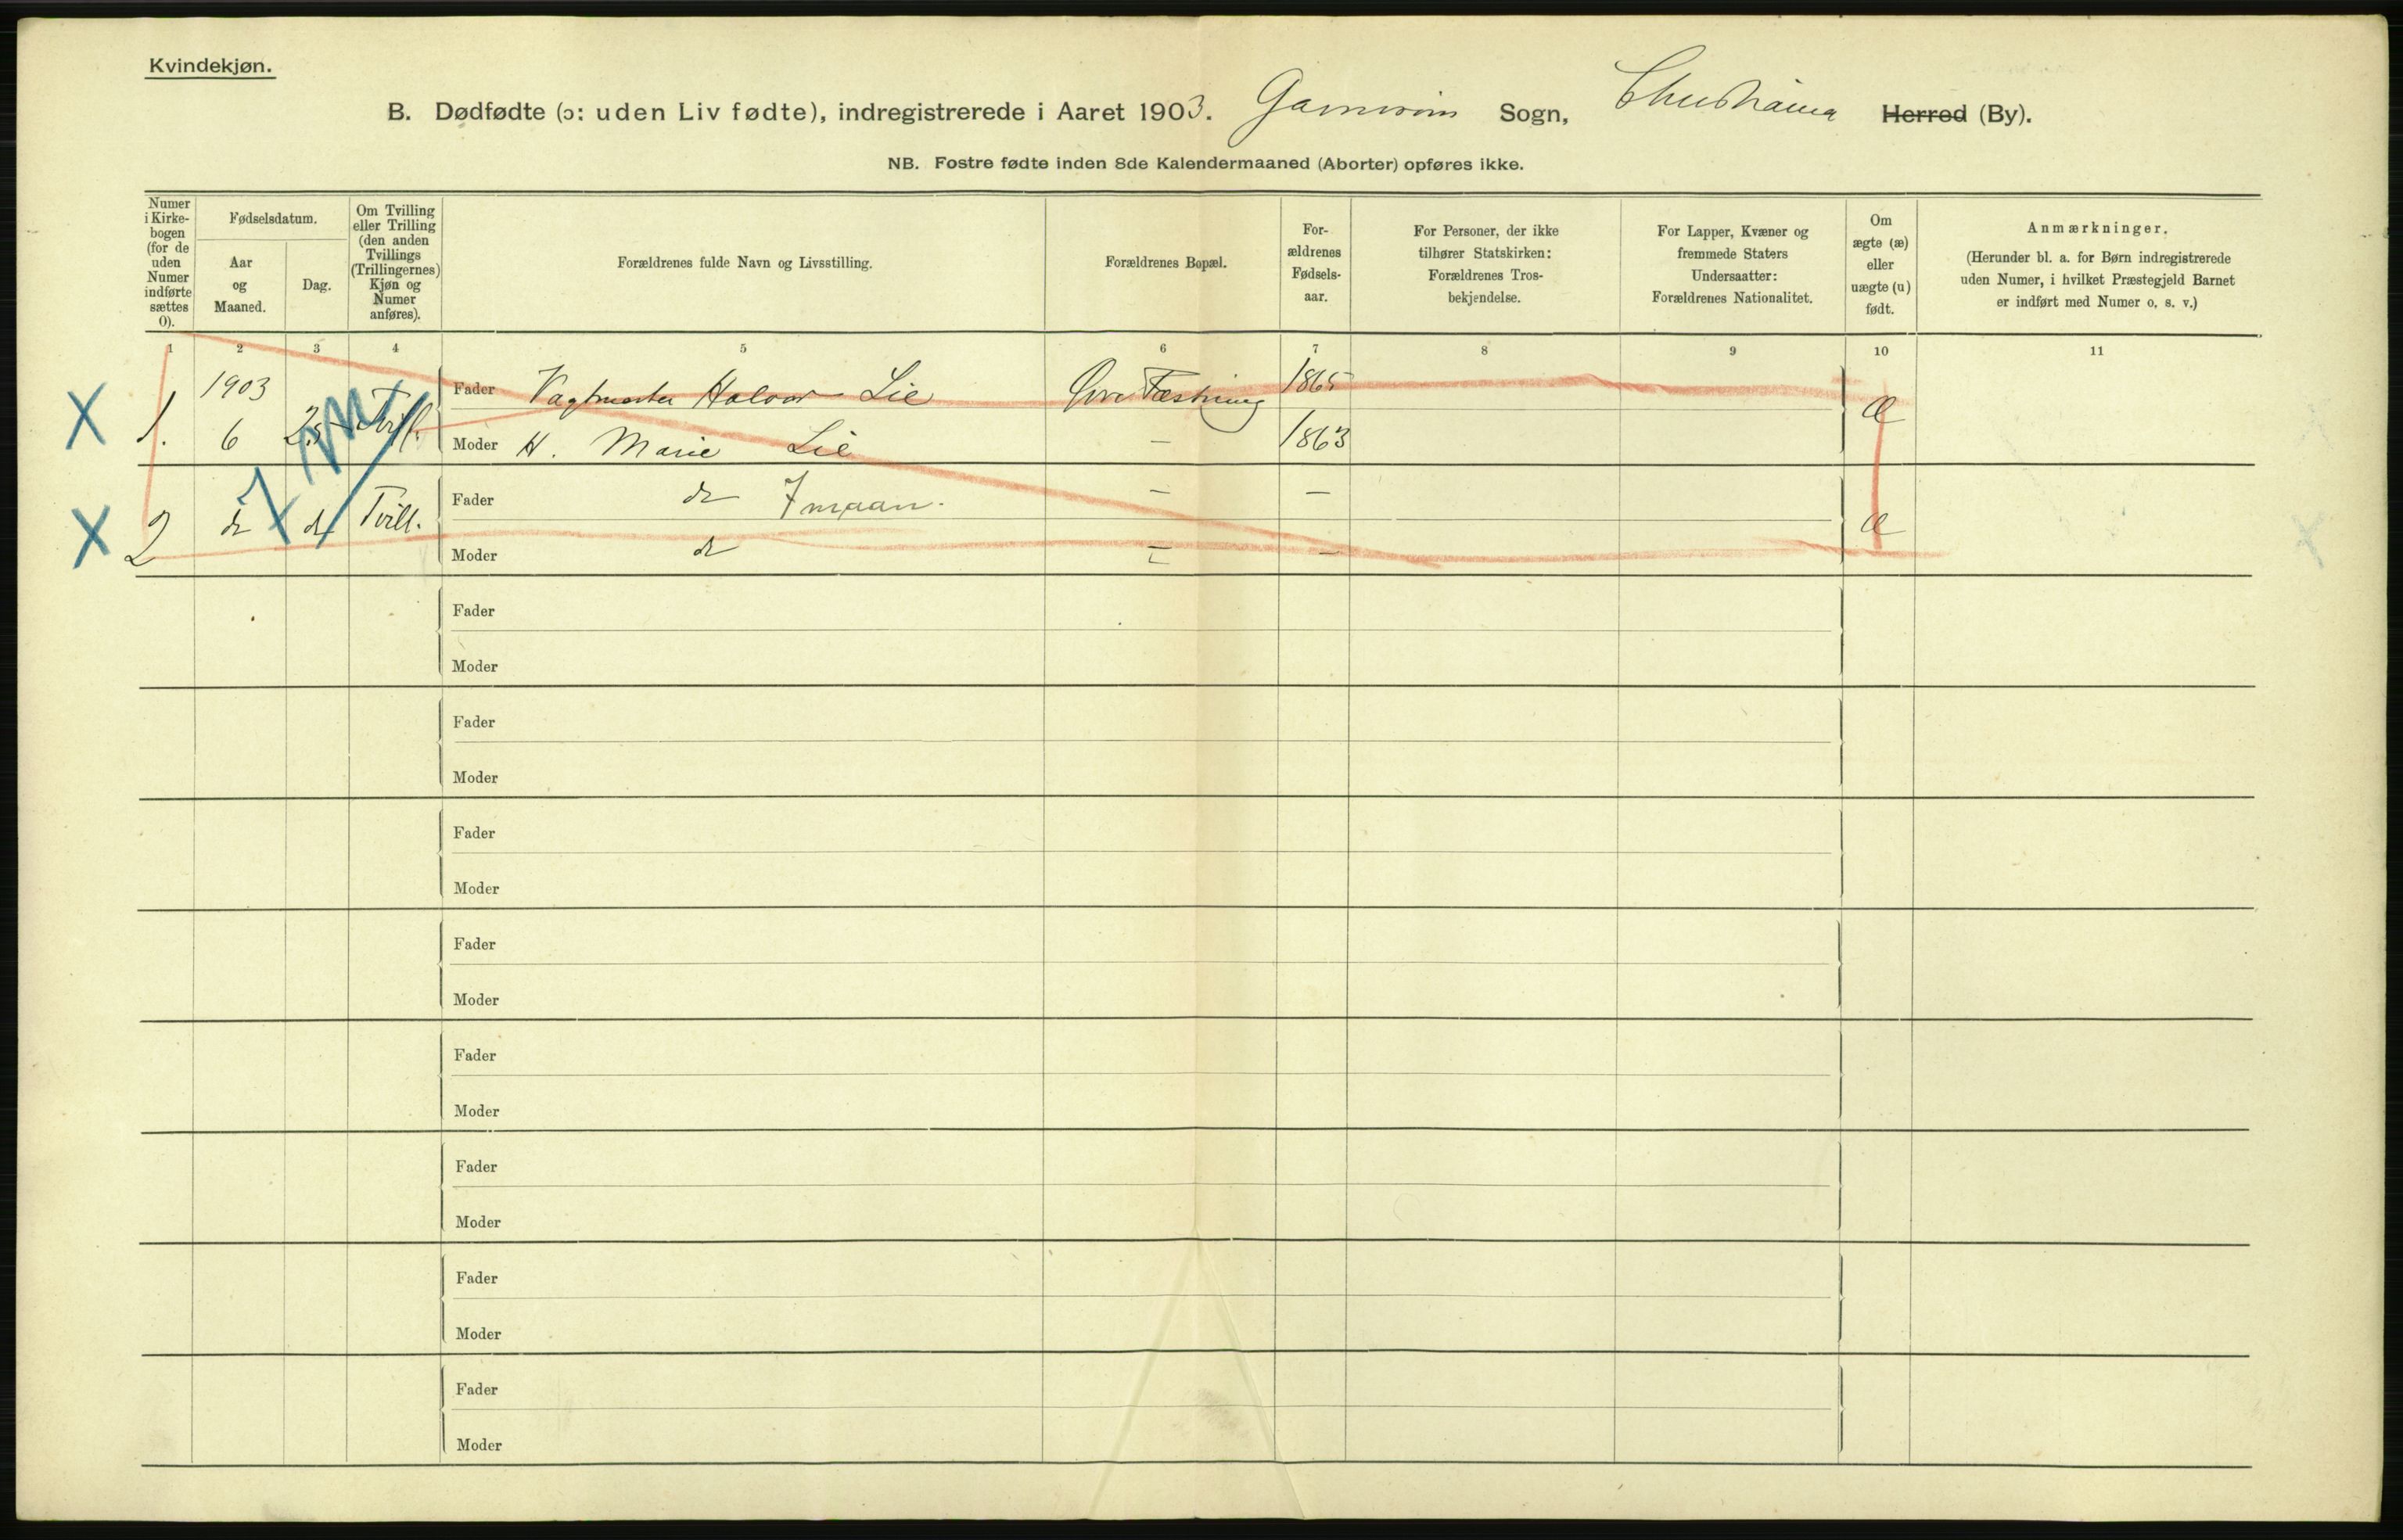 Kvindekjøn.
B. Dødfødte (ɔ: uden Liv fødte), indregistrerede i Aaret 1903. Garnisons Sogn, Christiania Herred (By).
NB. Fostre fødte inden 8de Kalendermaaned (Aborter) opføres ikke.
Numer
i Kirke-
bogen
(for de
uden
Numer
indførte
sættes
0).
Fødselsdatum.
Aar
og
Maaned.
Dag.
Om Tvilling
eller Trilling
(den anden
Tvillings
(Trillingernes)
Kjøn og
Numer
anføres).
Forældrenes fulde Navn og Livsstilling.
Forældrenes Bopæl.
For-
ældrenes
Fødsels-
aar.
For Personer, der ikke
tilhører Statskirken:
Forældrenes Tros-
bekjendelse.
For Lapper, Kvæner og
fremmede Staters
Undersaatter:
Forældrenes Nationalitet.
Om
ægte (æ)
eller
uægte (u)
født.
Anmærkninger.
(Herunder bl. a. for Børn indregistrerede
uden Numer, i hvilket Præstegjeld Barnet
er indført med Numer o. s. v.)
1 2 3 4 5 6 7 8 9 10 11
X 1. 1903 6 25 Tvill. Fader Vagtmester Halvor Lie Fæstning 1865 Æ
Moder H. Marie Lie — 1863
7 m
X 2 do do Tvill. Fader do 7 maan. — — Æ
Moder do — —
Fader
Moder
Fader
Moder
Fader
Moder
Fader
Moder
Fader
Moder
Fader
Moder
Fader
Moder
Fader
Moder